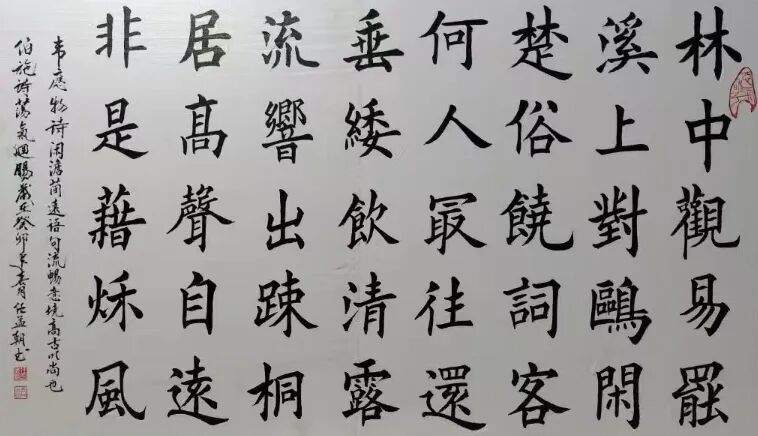 林中觀易罷
溪上對鷗閑
楚俗饒詞客
何人最往還
垂緌飲清露
流響出疎桐
居高聲自遠
非是藉秋風
韦應物诗闲澹简遠語句流暢意境高古以尚也
伯施诗蕩氣迴腸歲在癸卯年春月任益朝书